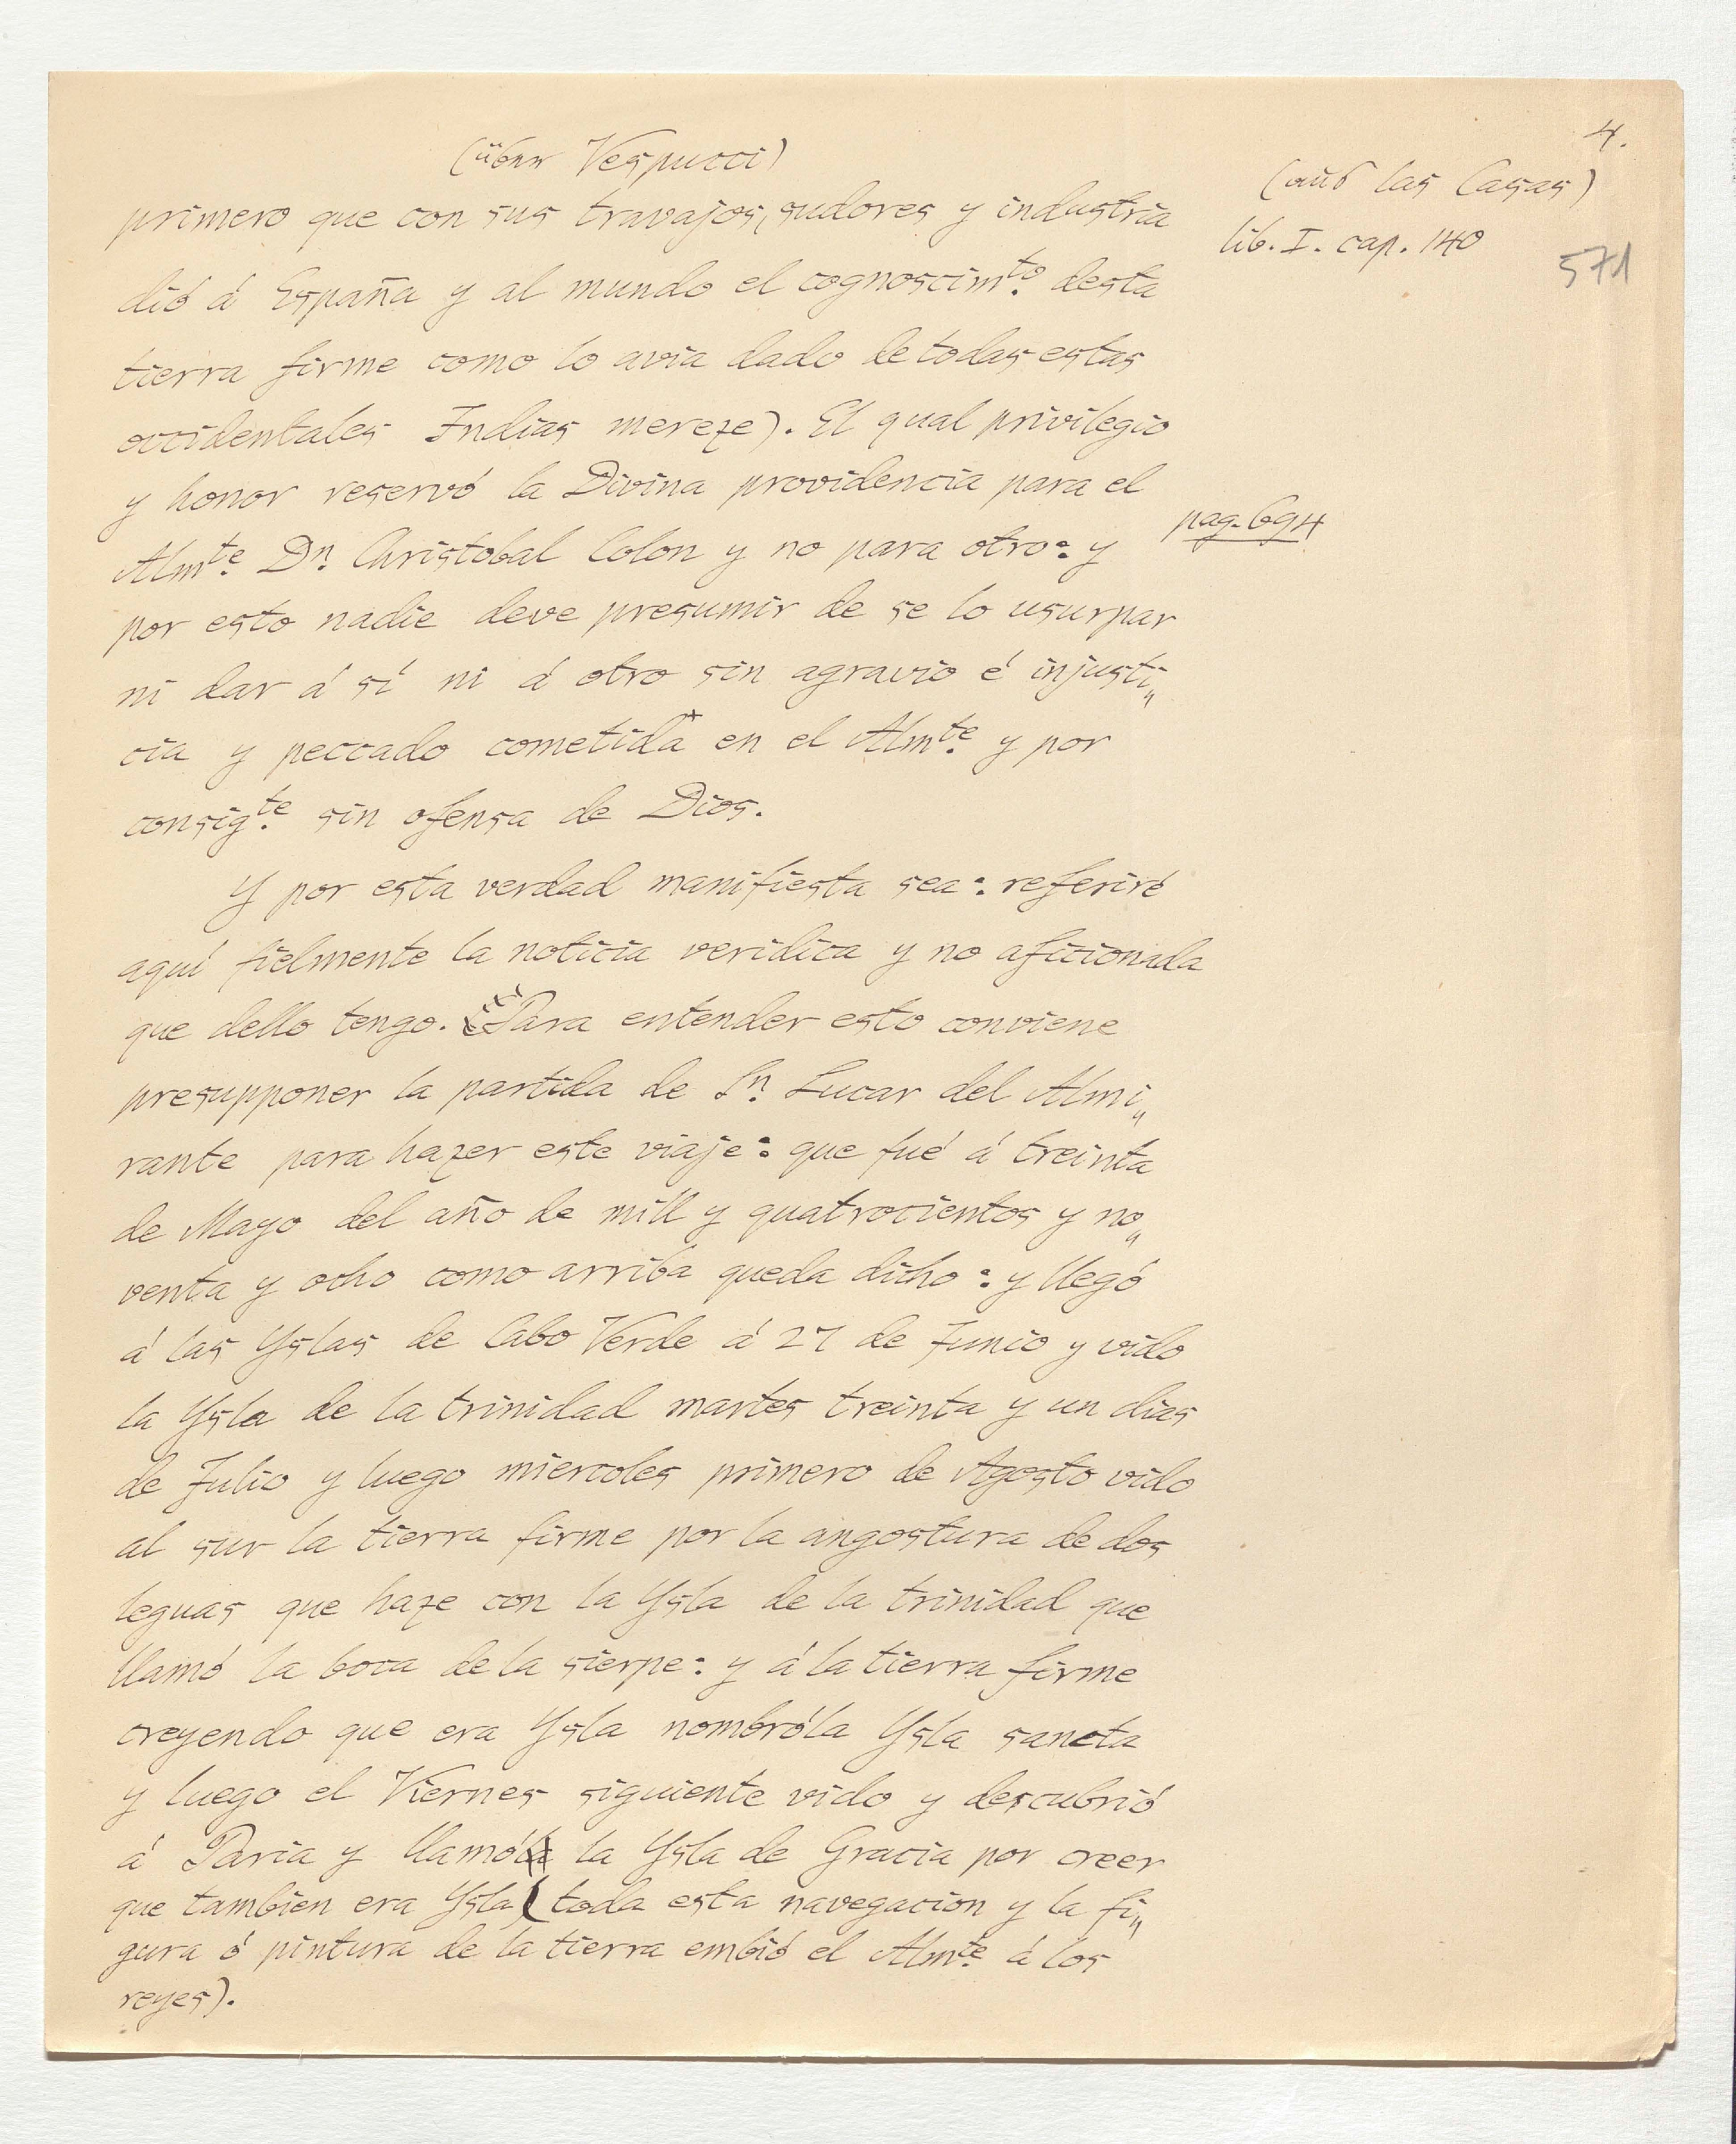 4.
(über Vespucci)
(aus las Casas)
lib. I. cap. 140
571
primero que con sus travajos, sudores y industria
dió á España y al mundo el cognoscim.to desta
tierra firme como lo avia dado de todas estas
occidentales Indias mereze). El qual privilegio
y honor reservó la Divina providencia para el
pag. 694
Alm.te Dn. Christobal Colon y no para otro: y
por esto nadie deve presumir de se lo usurpar
ni dar á sí ni á otro sin agravio é injusti„
cia y peccado cometida+ en el Alm.te y por
consig.te sin ofensa de Dios.
Y por esta verdad manifiesta sea: referiré
aquí fielmente la noticia veridica y no aficionada
que dello tengo. Para entender esto conviene
presupponer la partida de Sn. Lucar del Almi„
rante para hazer este viaje: que fué á treinta
de Mayo del año de mill y quatrocientos y no„
venta y ocho como arriba queda dicho: y llegó
á las Yslas de Cabo Verde á 27 de Junio y vido
la Ysla de la trinidad martes treinta y un dias
de Julio y luego miercoles primero de Agosto vido
al sur la tierra firme por la angostura de dos
leguas que haze con la Ysla de la trinidad que
llamó la boca de la sierpe: y á la tierra firme
creyendo que era Ysla nombróla Ysla sancta
y luego el Viernes siguiente vido y descubrió
á Paria y llamó la Ysla de Gracia por creer
que tambien era Ysla (toda esta navegacion y la fi„
gura ó pintura de la tierra embió el Alm.te á los
reyes).